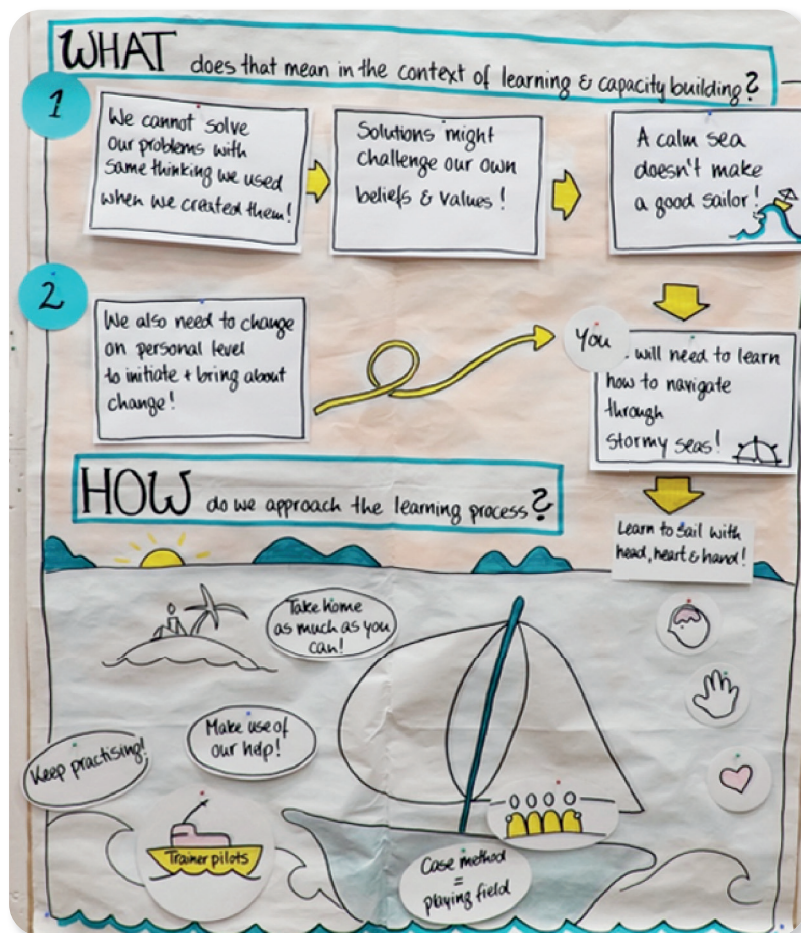 WHAT does that mean in the context of learning & capacity building?
1
We cannot solve
our problems with
same thinking we used
when we created them!
Solutions might
challenge our own
beliefs & values!
A calm sea
doesn't make
a good sailor!
2
We also need to change
on personal level
to initiate + bring about
change!
You
will need to learn
how to navigate
through
stormy seas!
HOW do we approach the learning process?
Learn to sail with
head, heart & hand!
Take home
as much as you
can!
Make use of
our help!
Keep practising!
Trainer pilots
Case method
=
playing field